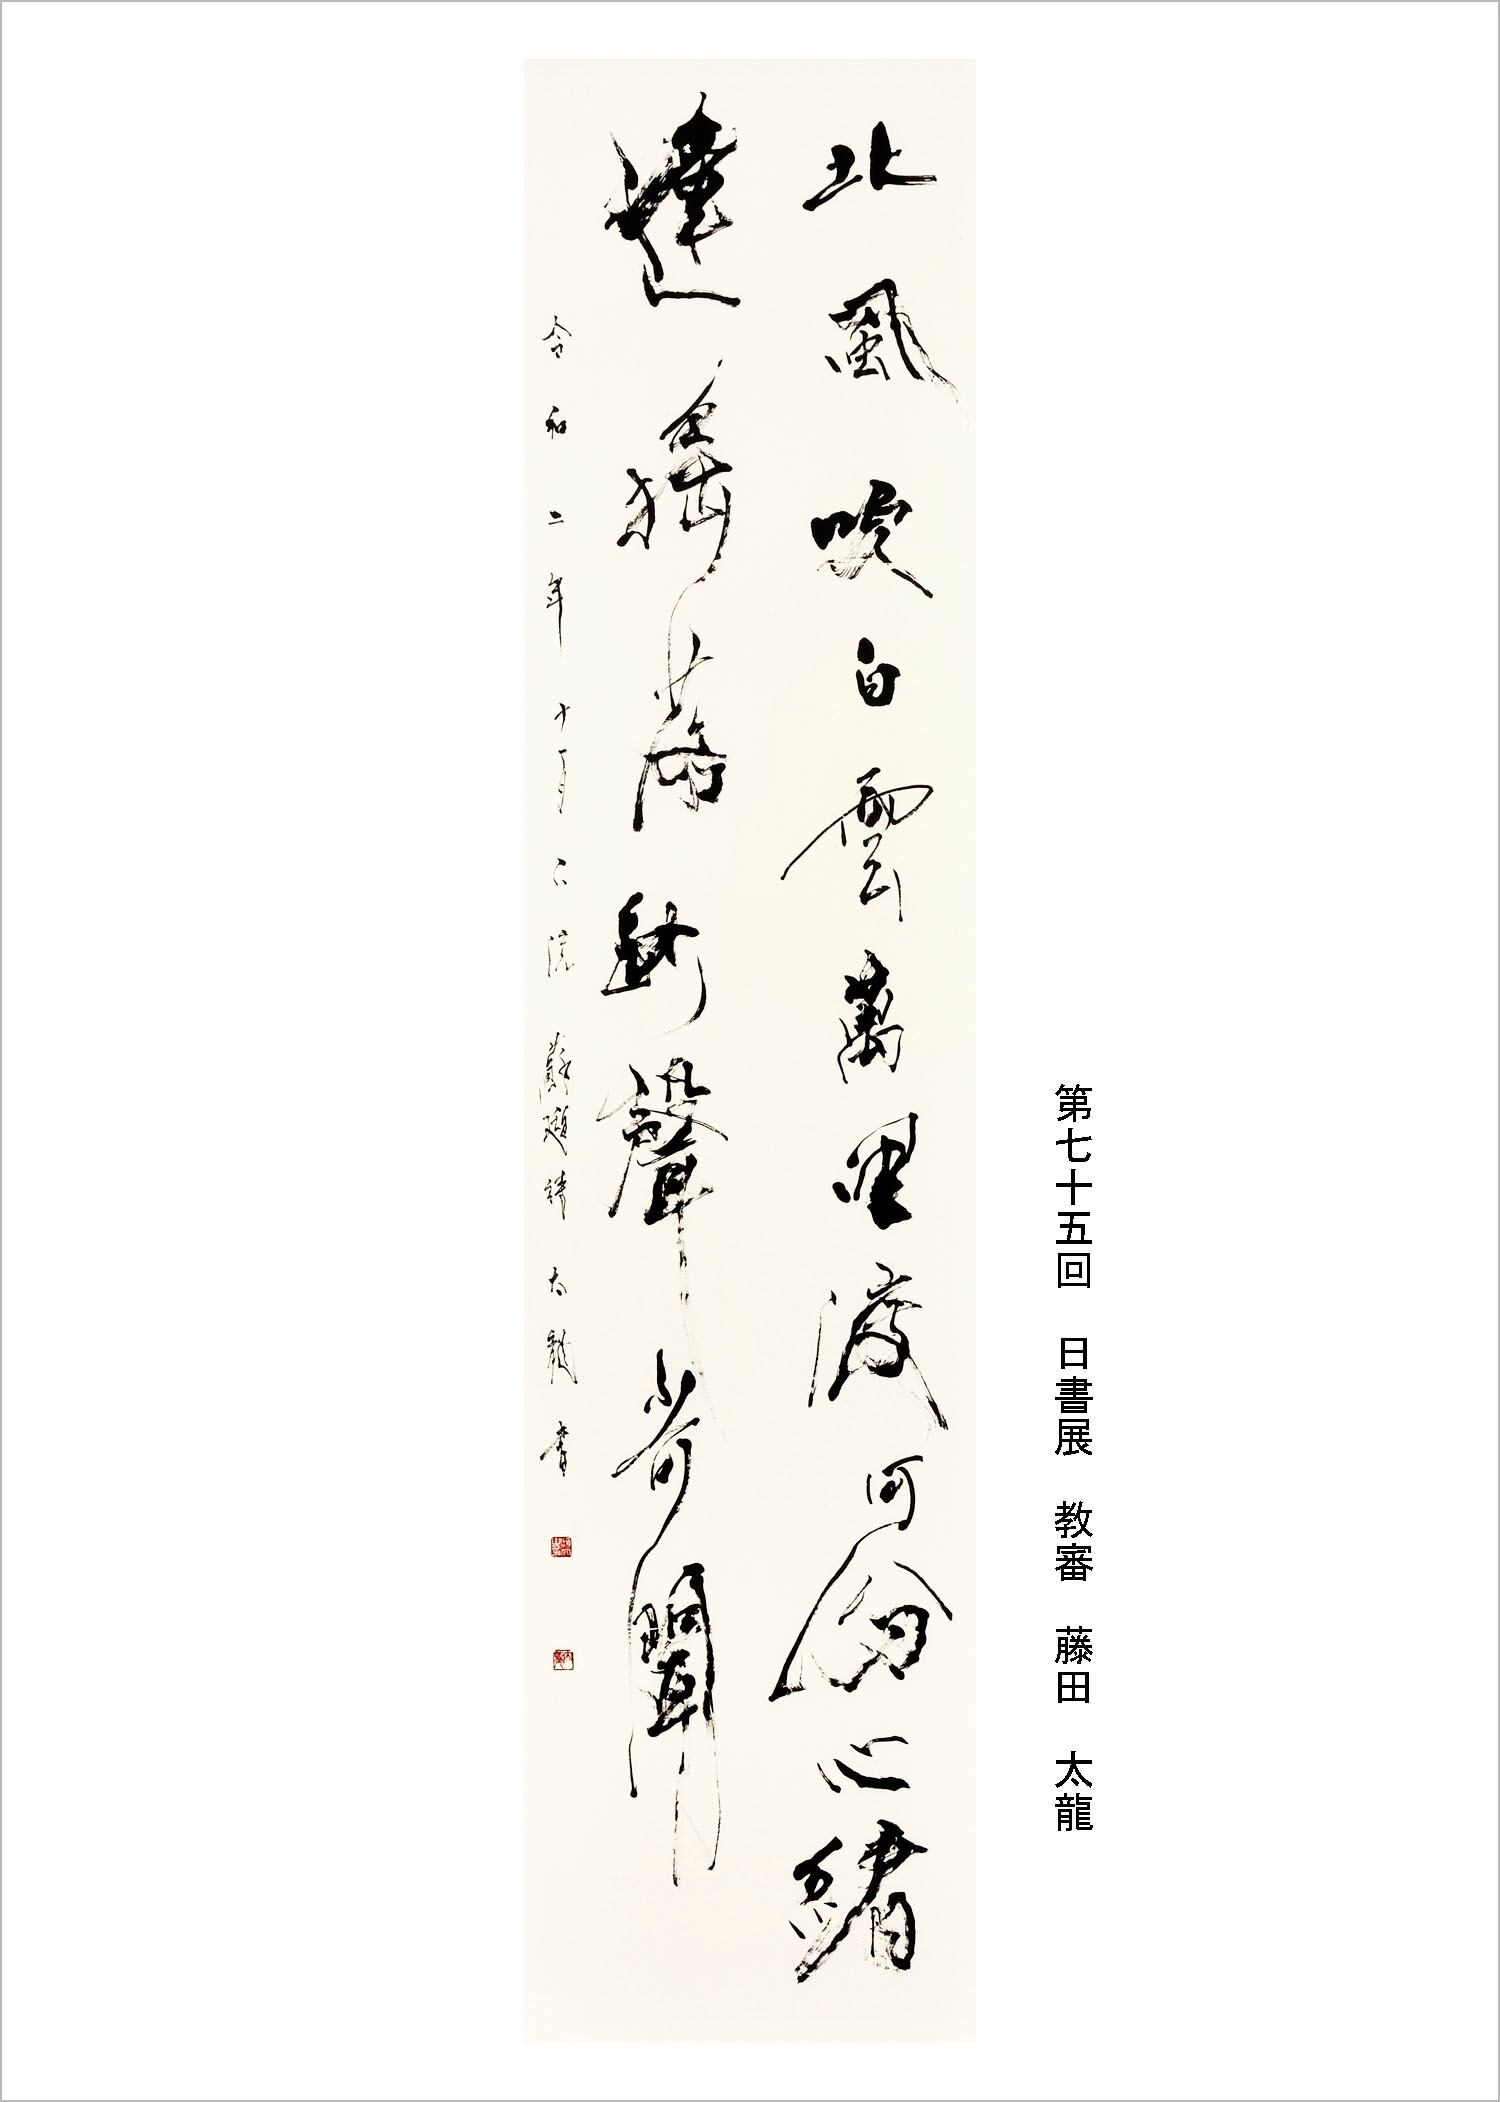 第七十五回　日書展　教審　藤田　太龍
北風吹白雲萬里渡河汾心緒
逢搖落秋聲不可聞
令和二年十一月下浣蘇頲詩太龍書